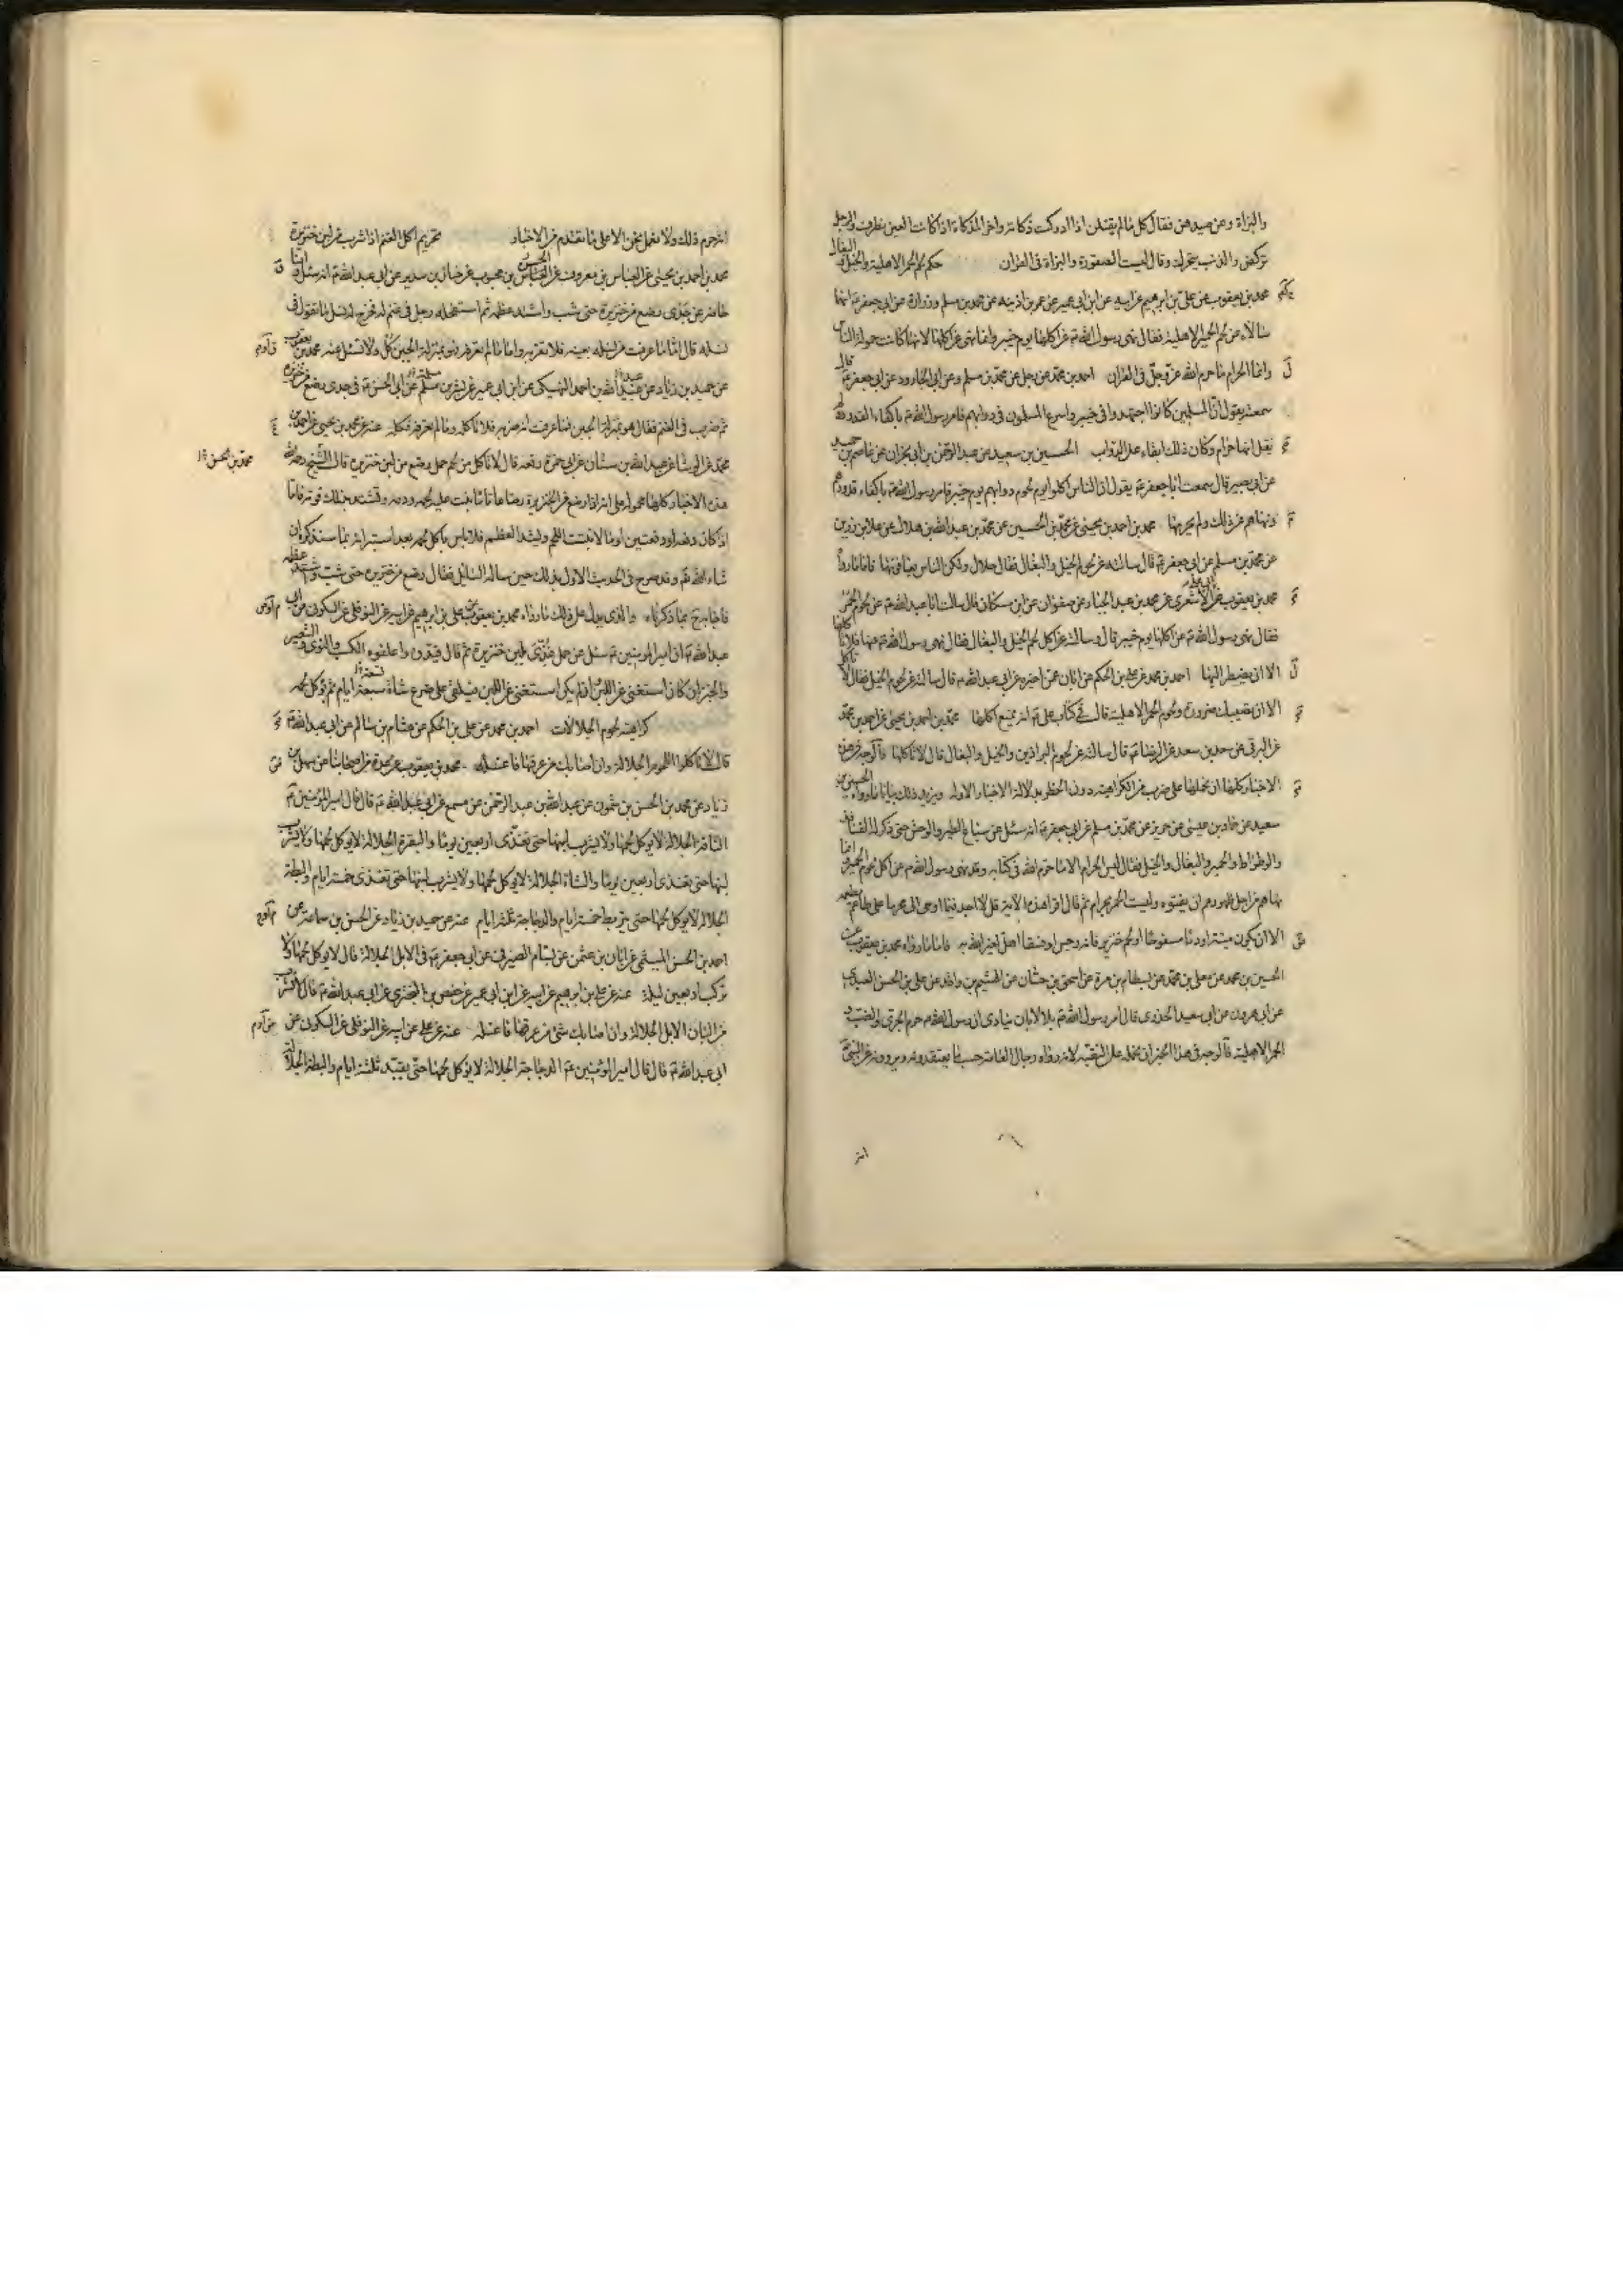 والبزاة وعن صيدهن فقال كل ما لم يقتلن اذا ادركت ذكاته واخر الذكاة اذا كانت العين تطرف والرجل
تركض والذنب يتحرك وقال ليست الصقورة والبزاة في القران حكم لحم الحمر الاهلية والخيل والبغال
محمد بن يعقوب عن علي بن ابرهيم عن ابيه عن ابن ابي عمير عن عمر بن اذينه عن محمد بن مسلم وزرارة عن ابي جعفر ع انهما
سالاه عن لحم الحمير الاهلية فقال نهى رسول الله ص عن اكلها يوم خيبر وانما نهى عن اكلها لانها كانت حمولة الناس
وانما الحرام ما حرم الله عز وجل في القران احمد بن محمد عن رجل عن محمد بن مسلم وعن ابي الجارود عن ابي جعفر ع قال
سمعته يقول ان المسلمين كانوا اجهدوا في خيبر واسرع المسلمون في دوابهم فامر رسول الله ص باكفاء القدور ولم
يقل انها حرام وكان ذلك ابقاء على الدواب الحسين بن سعيد عن عبد الرحمن بن ابي نجران عن عاصم بن حميد
عن ابي بصير قال سمعت ابا جعفر ع يقول ان الناس اكلوا لحوم دوابهم يوم خيبر فامر رسول الله ص باكفاء قدورهم
ونهاهم عن ذلك ولم يحرمها محمد بن احمد بن يحيى عن محمد بن الحسين عن محمد بن عبد الله بن هلال عن علا بن رزين
عن محمد بن مسلم عن ابي جعفر ع قال سالته عن لحوم الخيل والبغال فقال حلال ولكن الناس يعافونها فاما ما رواه
محمد بن يعقوب عن ابي علي الاشعري عن محمد بن عبد الجبار عن صفوان عن ابن مسكان قال سالت ابا عبد الله ع عن لحوم الحمر
فقال نهى رسول الله ص عن اكلها يوم خيبر قال وسالته عن اكل لحم الخيل والبغال فقال نهى رسول الله ص عنها فلا تاكلها
الا ان يضطر اليها احمد بن محمد عن علي بن الحكم عن ابان عمن اخبره عن ابي عبد الله ع قال سالته عن لحوم الخيل فقال لا تاكل
الا ان يصيبك ضرورة ولحوم الحمر الاهلية قال في كتاب علي ع انه يمنع اكلها محمد بن احمد بن يحيى عن احمد بن محمد
عن البرقي عن سعد بن سعد عن الرضا ع قال سالته عن لحوم البراذين والخيل والبغال قال لا تاكلها فالوجه في هذه
الاخبار كلها ان نحملها على ضرب من الكراهية دون الحظر بدلالة الاخبار الاولة ويزيد ذلك بيانا ما رواه الحسين بن
سعيد عن حماد بن عيسى عن حريز عن محمد بن مسلم عن ابي جعفر ع انه سئل عن سباع الطير والوحش حتى ذكر له القنافذ
والوطواط والحمير والبغال والخيل فقال ليس الحرام الا ما حرم الله في كتابه وقد نهى رسول الله ص عن اكل لحوم الحمير وانما
نهاهم من اجل ظهورهم ان يفنوه وليست الحمر بحرام ثم قال اقرا هذه الاية قل لا اجد فيما اوحي الي محرما على طاعم يطعمه
الا ان يكون ميتة او دما مسفوحا او لحم خنزير فانه رجس او فسقا اهل لغير الله به فاما ما رواه محمد بن يعقوب عن
الحسين بن محمد عن معلى بن محمد عن بسطام بن مرة عن اسحق بن حسان عن الهيثم بن واقد عن علي بن الحسن العبدي
عن ابي هرون عن ابي سعيد الخدري قال امر رسول الله ص بلالا بان ينادي ان رسول الله ص حرم الجري والضب و
الحمر الاهلية فالوجه في هذا الخبر ان نحمله على التقية لانه رواه رجال العامة حسب ما يعتقدونه ويروونه عن النبي ص
انه
انه حرم ذلك ولا نعمل نحن الا على ما تقدم من الاخبار تحريم اكل الغنم اذا شرب من لبن خنزيرة
محمد بن احمد بن يحيى عن العباس بن معروف عن الحسن بن محبوب عن حنان بن سدير عن ابي عبد الله ع انه سئل وانا
حاضر عن جدي رضع من خنزيرة حتى شب واشتد عظمه ثم استفحله رجل في غنم له فخرج له نسل ما تقول في
نسله قال اما ما عرفت من نسله بعينه فلا تقربه واما ما لم تعرفه فهو بمنزلة الجبن كل ولا تسئل عنه محمد بن يعقوب
عن حميد بن زياد عن عبد الله بن احمد النهيكي عن ابن ابي عمير عن بشر بن مسلمة عن ابي الحسن ع في جدي رضع من خنزيرة
ثم ضرب في الغنم فقال هو بمنزلة الجبن فما عرفت انه ضربه فلا تاكله وما لم تعرفه فكله عنه عن محمد بن يحيى عن احمد بن
محمد عن الوشا عن عبد الله بن سنان عن ابي حمزة رفعه قال لا تاكل من لحم حمل رضع من لبن خنزيرة قال الشيخ رحمه الله
محمد بن الحسن
هذه الاخبار كلها محمولة على انه اذا رضع من الخنزيرة رضاعا تاما نبت عليه لحمه ودمه وتشتد بذلك قوته فاما
اذا كان دفعة او دفعتين او ما لا ينبت اللحم ويشد العظم فلا باس باكل لحمه بعد استبرائه بما سنذكره ان
شاء الله تع وقد صرح في الحديث الاول بذلك حين ساله السائل فقال رضع من خنزيرة حتى شب واشتد عظمه
فاجابه ع بما ذكرناه والذي يدل على ذلك ما رواه محمد بن يعقوب عن علي بن ابرهيم عن ابيه عن النوفلي عن السكوني عن ابي
عبد الله ع ان امير المومنين ع سئل عن حمل غذي بلبن خنزيرة ثم قال قيدوه واعلفوه الكسب والنوى والشعير
والخبز ان كان استغنى عن اللبن وان لم يكن استغنى عن اللبن فيلقى على ضرع شاة سبعة ايام ثم يؤكل لحمه
كراهية لحوم الجلالات احمد بن محمد عن علي بن الحكم عن هشام بن سالم عن ابي عبد الله ع
قال لا تاكلوا اللحوم الجلالة وان اصابك من عرقها فاغسله محمد بن يعقوب عن عدة من اصحابنا عن سهل بن
زياد عن محمد بن الحسن بن شمون عن عبد الله بن عبد الرحمن عن مسمع عن ابي عبد الله ع قال قال امير المؤمنين ع
الناقة الجلالة لا يؤكل لحمها ولا يشرب لبنها حتى تغذى اربعين يوما والبقرة الجلالة لا يؤكل لحمها ولا يشرب
لبنها حتى تغذى اربعين يوما والشاة الجلالة لا يؤكل لحمها ولا يشرب لبنها حتى تغذى خمسة ايام والبطة
الجلالة لا يؤكل لحمها حتى يربط خمسة ايام والدجاجة ثلثة ايام عنه عن حميد بن زياد عن الحسن بن سماعة عن
احمد بن الحسن الميثمي عن ابان بن عثمن عن بسام الصيرفي عن ابي جعفر ع في الابل الجلالة قال لا يؤكل لحمها ولا
تركب اربعين ليلة عنه عن علي بن ابرهيم عن ابيه عن ابن ابي عمير عن حفص بن البختري عن ابي عبد الله ع قال لا تشرب
من البان الابل الجلالة وان اصابك شئ من عرقها فاغسله عنه عن علي عن ابيه عن النوفلي عن السكوني عن
ابي عبد الله ع قال قال امير المؤمنين ع الدجاجة الجلالة لا يؤكل لحمها حتى يقيد ثلثة ايام والبطة الجلالة